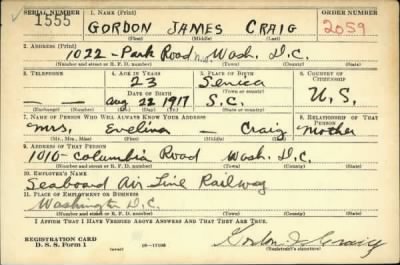 SERIAL NUMBER 1. NAME (Print) ORDER NUMBER
1555 GORDON JAMES CRAIG 2059
(First) (Middle) (Last)
2. ADDRESS (Print)
1022 - Park Road NW Wash. D.C.
(Number and street or R. F. D. number) (Town) (County) (State)
3. TELEPHONE 4. AGE IN YEARS 5. PLACE OF BIRTH 6. COUNTRY OF CITIZENSHIP
23 Senica
DATE OF BIRTH (Town or county)
— — Aug 22 1917 S.C. U.S.
(Exchange) (Number) (Mo.) (Day) (Yr.) (State or country)
7. NAME OF PERSON WHO WILL ALWAYS KNOW YOUR ADDRESS 8. RELATIONSHIP OF THAT PERSON
Mrs, Evelina — Craig Mother
(Mr., Mrs., Miss) (First) (Middle) (Last)
9. ADDRESS OF THAT PERSON
1010 - Columbia Road Wash. D.C.
(Number and street or R. F. D. number) (Town) (County) (State)
10. EMPLOYER'S NAME
Seaboard Air Line Railway
11. PLACE OF EMPLOYMENT OR BUSINESS
Washington D.C.
(Number and street or R. F. D. number) (Town) (County) (State)
I AFFIRM THAT I HAVE VERIFIED ABOVE ANSWERS AND THAT THEY ARE TRUE.
REGISTRATION CARD
D. S. S. Form 1 Gordon J. Craig
(Registrant's signature)